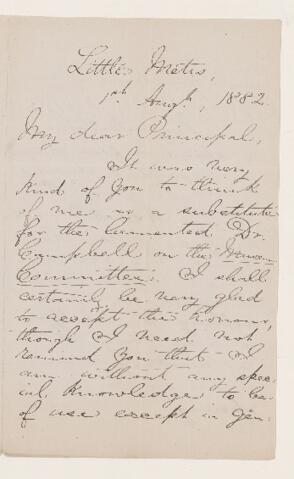 Little Metis,
1st Augt, 1882.
My dear Principal,
It was very
kind of you to think
of me as a substitute
for the lamented Dr.
Campbell on the Museum
Committee. I shall
certainly be very glad
to accept the honour,
though I need not
remind you that I
am without any spec-
ial knowledge to be
of use except in gen-